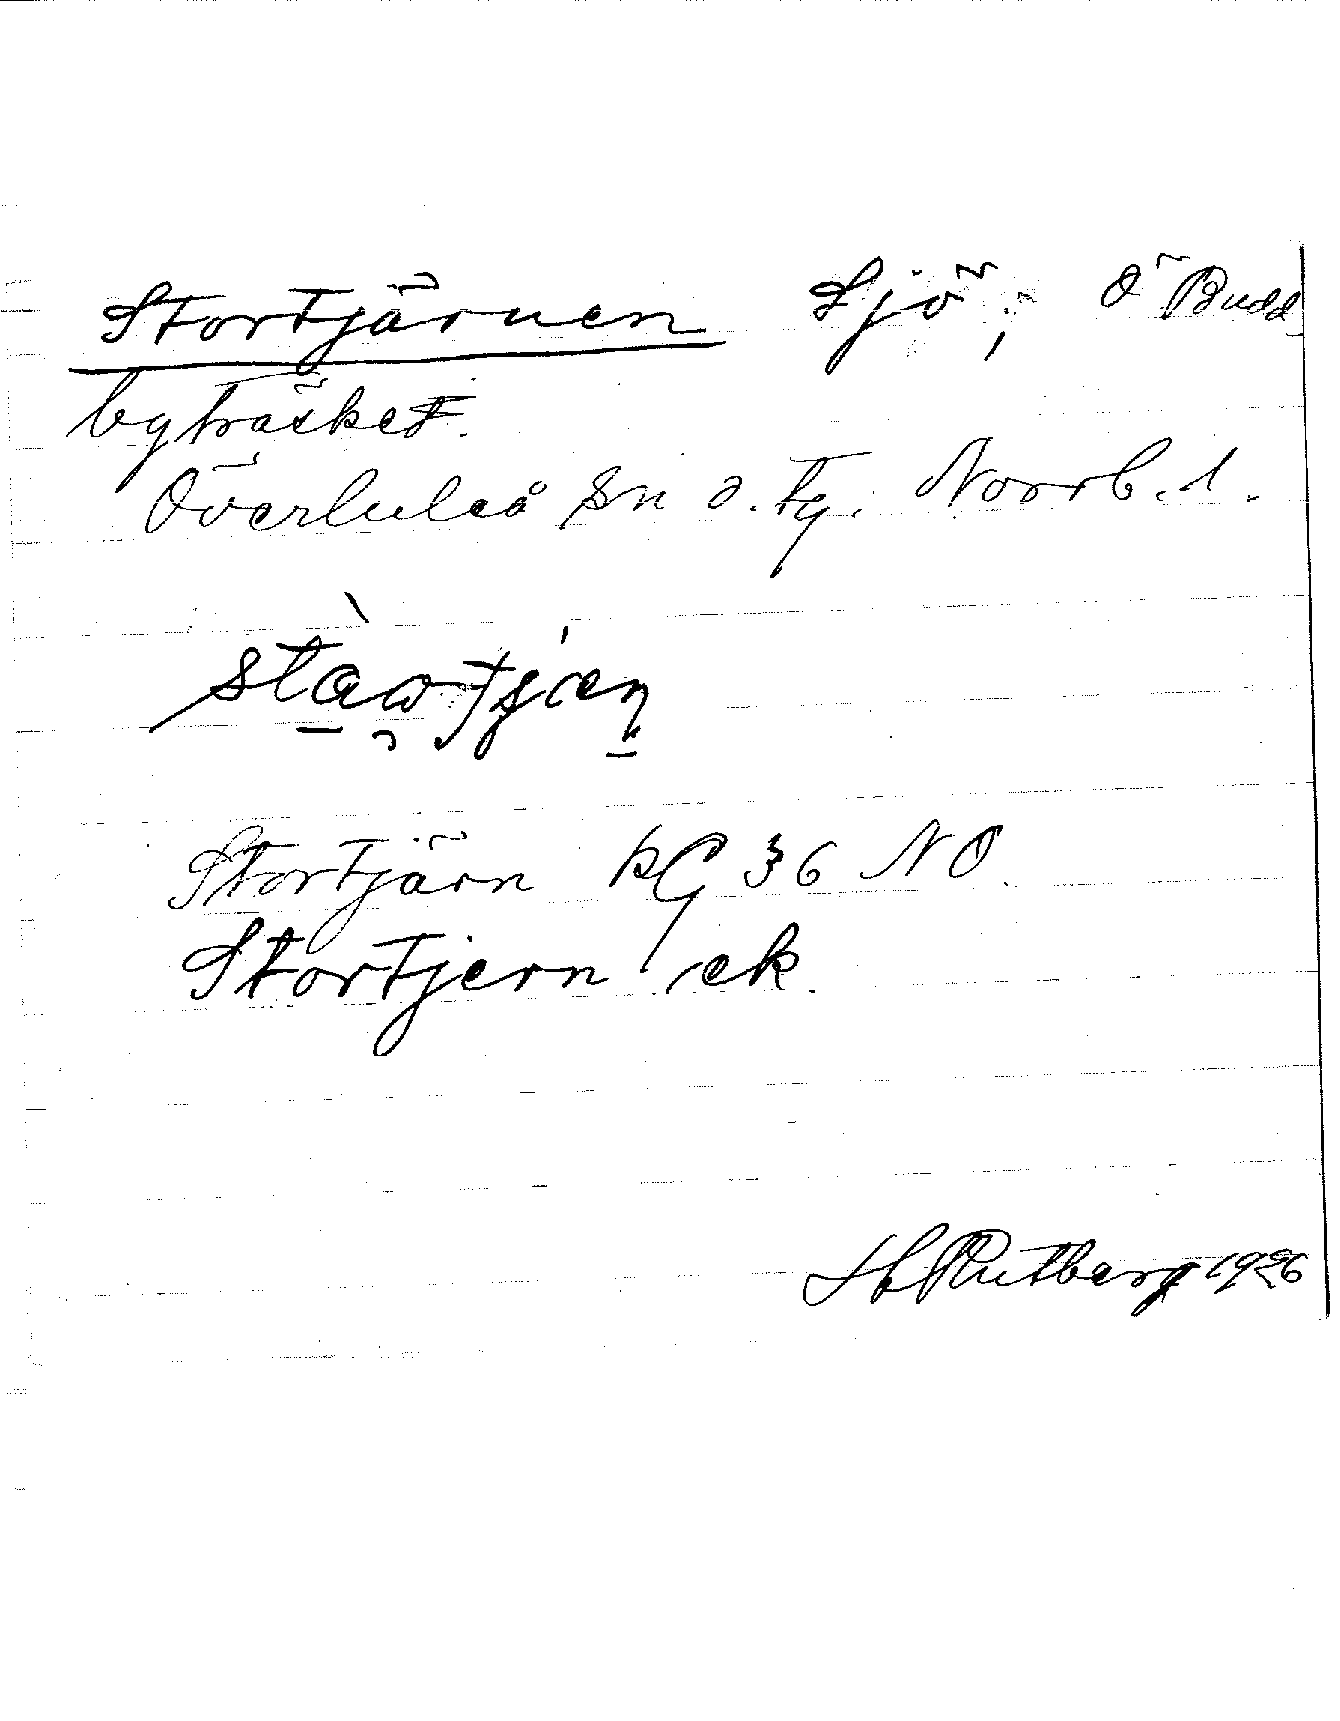 Stortjärnen Sjö; Ö Budd
byträsket.
Överluleå sn o. tg. Norrb. l.
Stortjärn kG 36 NO
Stortjern ek.
H Rutberg 1926